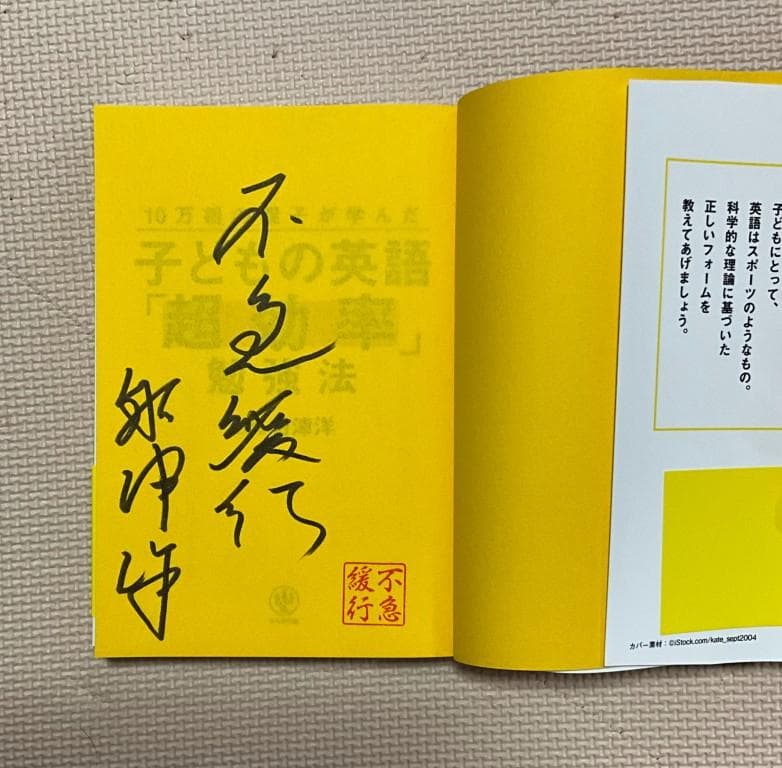 不急緩行
船津洋
子どもの英語
「超効率」
勉強法
不急
緩行
子どもにとって、
英語はスポーツのようなもの。
科学的な理論に基づいた
正しいフォームを
教えてあげましょう。
カバー素材：©iStock.com/kate_sept2004